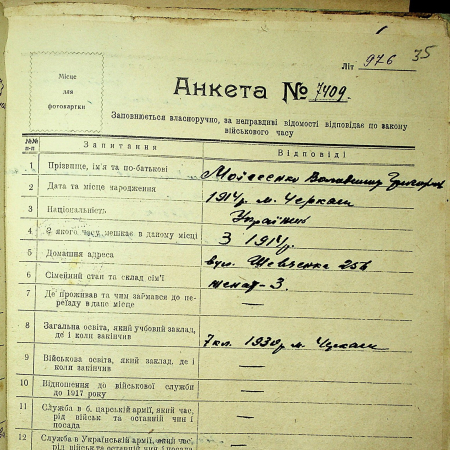 Літ 976 35
Місце
для
фотокартки
Анкета № 7409.
Заповнюється власноручно, за неправдиві відомості відповідає по закону
військового часу
№№ п-п Запитання Відповіді
1 Прізвище, ім'я та по-батькові Моїсеєнко Володимир Григоров
2 Дата та місце народження 1914 р. м. Черкаси
3 Національність Українець
4 З якого часу мешкає в даному місці З 1914 р.
5 Домашня адреса вул. Шевченка 256
6 Сімейний стан та склад сім'ї женат - 3.
7 Де проживав та чим займався до пе-
реїзду в дане місце —
8 Загальна освіта, який учбовий заклад,
де і коли закінчив 7 кл. 1930 р. м. Черкаси
9 Військова освіта, який заклад, де і
коли закінчив —
10 Відношення до військової служби
до 1917 року —
11 Служба в б. царській армії, який час,
рід військ та останній чин і
посада —
12 Служба в Українській армії, який час,
рід військ та останній чин і посада